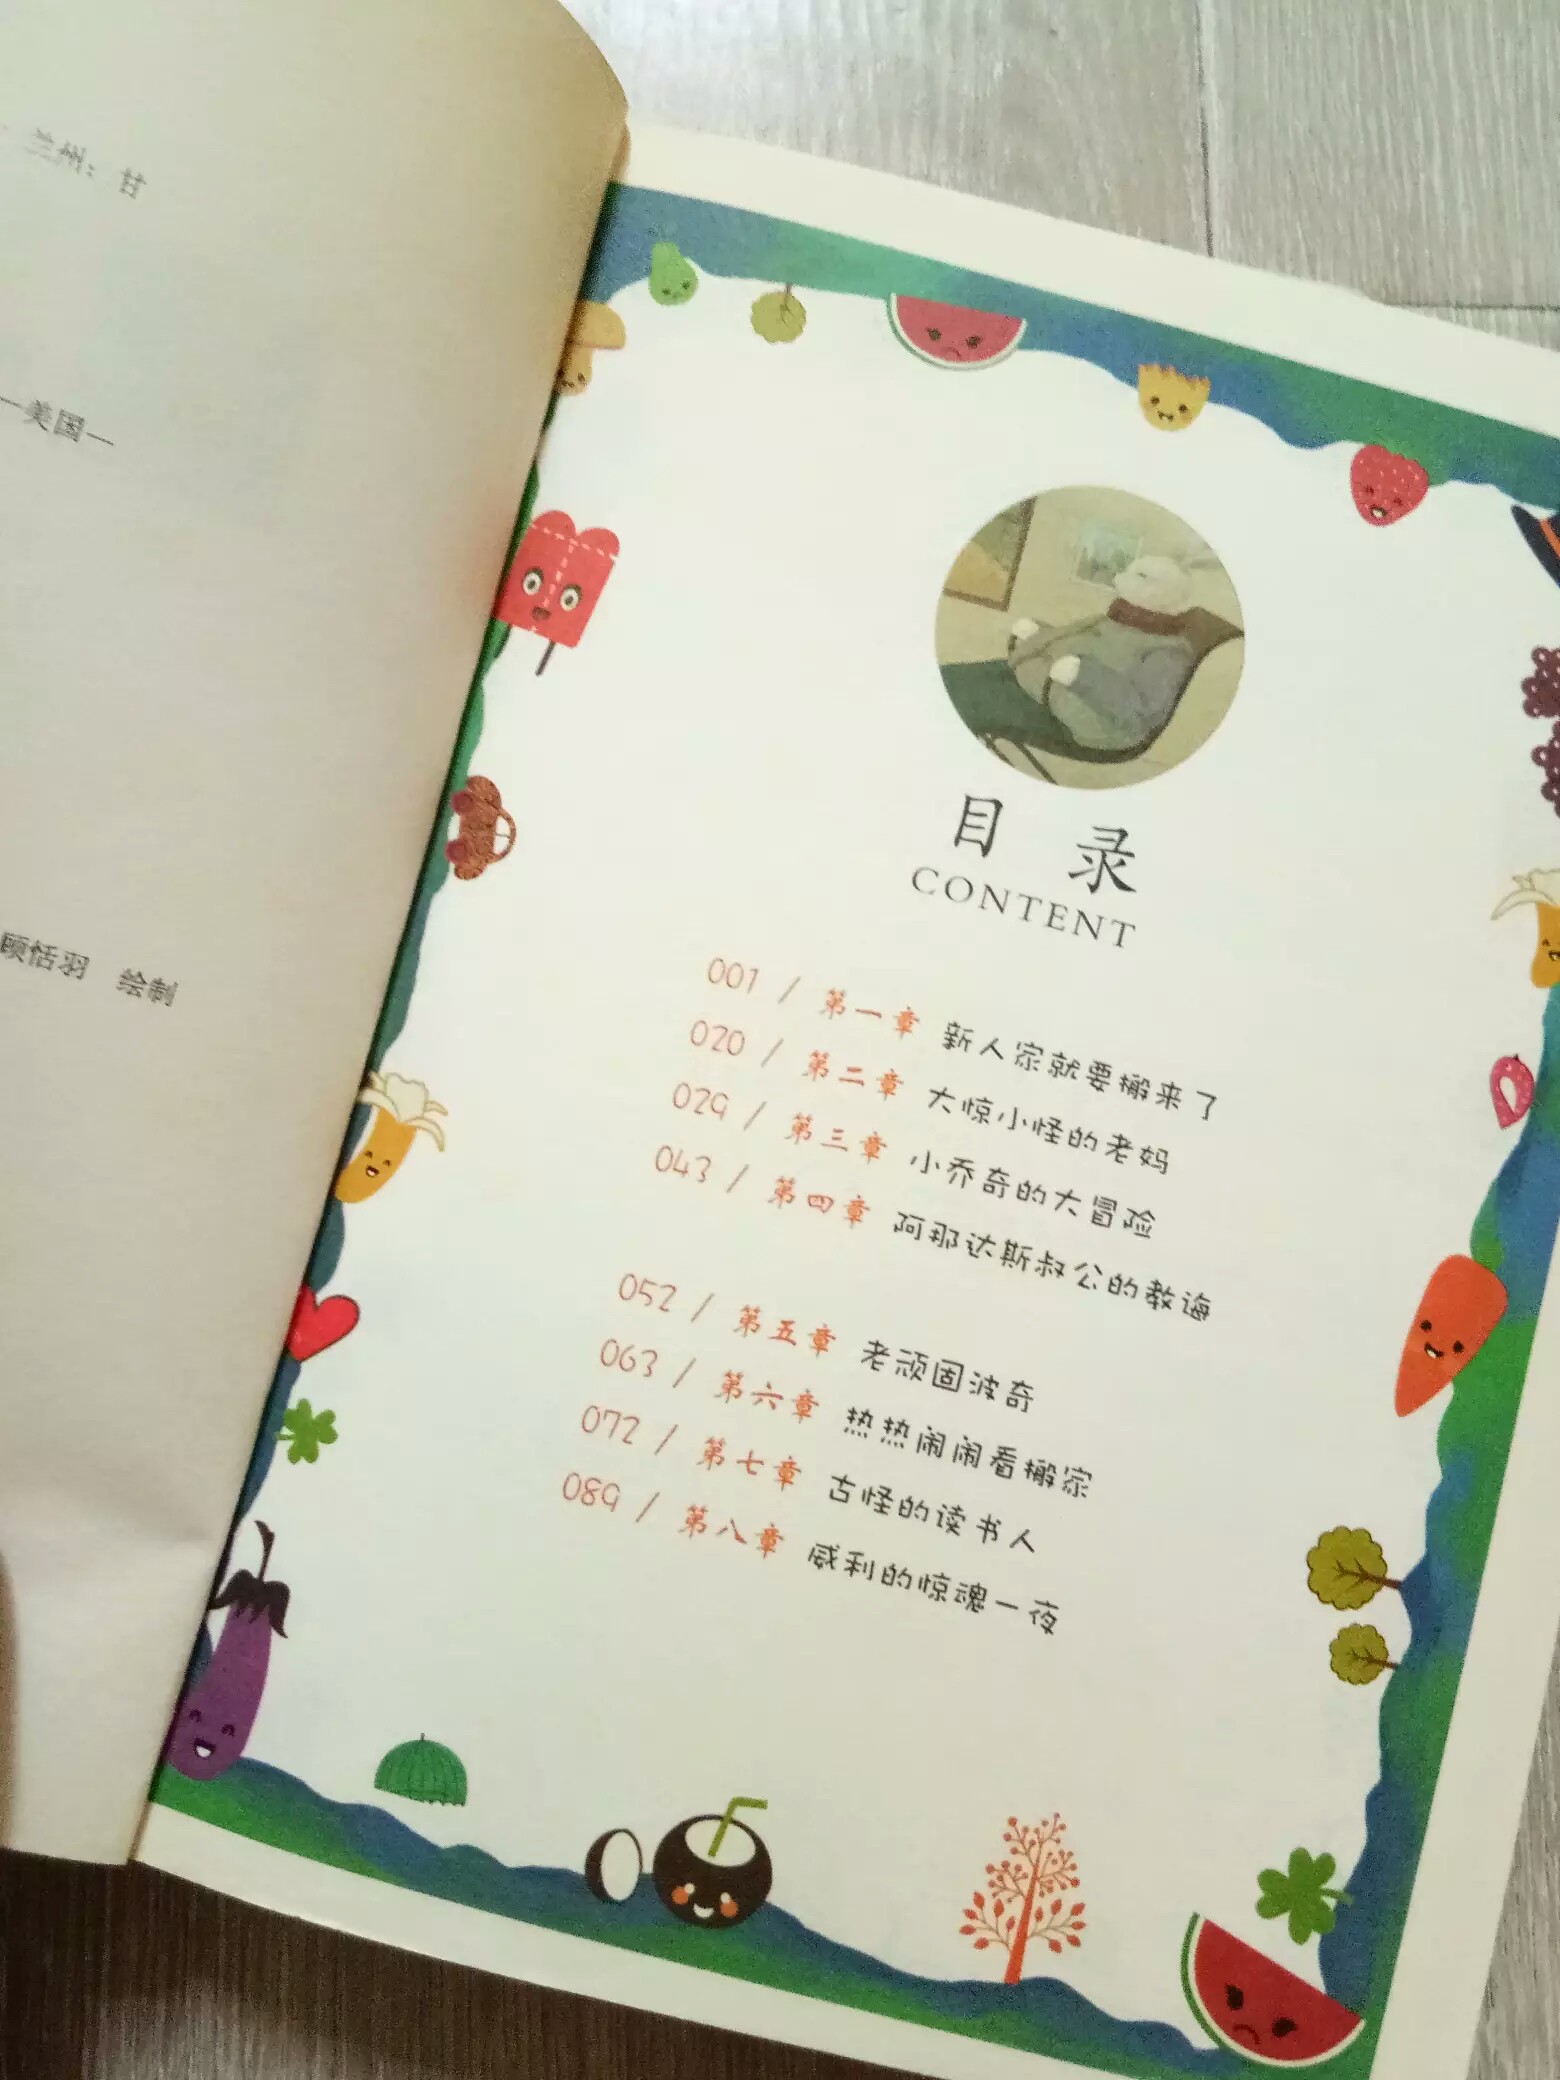 兰州：甘
—美国—
顾恬羽 绘制
目 录
CONTENT
001 / 第一章 新人家就要搬来了
020 / 第二章 大惊小怪的老妈
029 / 第三章 小乔奇的大冒险
043 / 第四章 阿那达斯叔公的教诲
052 / 第五章 老顽固波奇
063 / 第六章 热热闹闹看搬家
072 / 第七章 古怪的读书人
089 / 第八章 威利的惊魂一夜